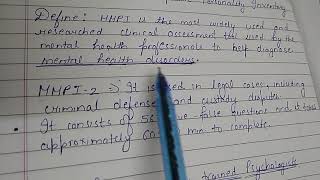 Personality Inventory
Define: MMPI is the most widely used and
researched clinical assessment tool used by the
mental health professionals to help diagnose
mental health disorders.
MMPI-2 => It is used in legal cases, including
criminal defense and custody disputes.
It consists of 56 true-false question and it takes
approximately 60 min to complete.
trained Psychologists